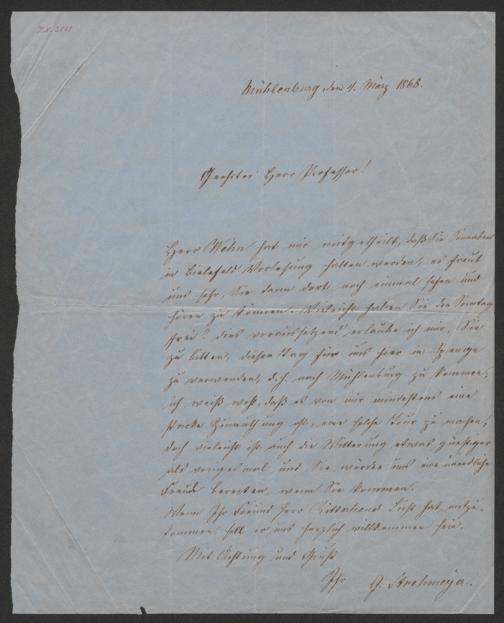 Mühlenburg den 4. März 1868.
Geehrter Herr Professor!
Herr Wehn hat mir mitgetheilt, daß Sie Sonnabend
in Bielefeld Vorlesung halten werden, es freut
uns sehr, Sie dann dort noch einmal sehen und
hören zu können. Vielleicht haben Sie den Sonntag
frei? dies voraussetzend erlaube ich mir, Sie
zu bitten, diesen Tag für uns hier in Spenge
zu verwenden, d.h. nach Mühlenburg zu kommen,
ich weiß wohl, daß es von mir mindestens eine
starke Zumuthung ist, eine solche Tour zu machen,
doch vieleicht ist auch die Witterung etwas günstiger
als voriges mal und Sie würden uns eine unendliche
Freude bereiten, wenn Sie kommen.
Wenn Ihr Freund Herr hat mitzu-
kommen, soll er uns herzlich willkommen sein.
Mit Achtung und Gruß
Ihr G. Strohmeyer.